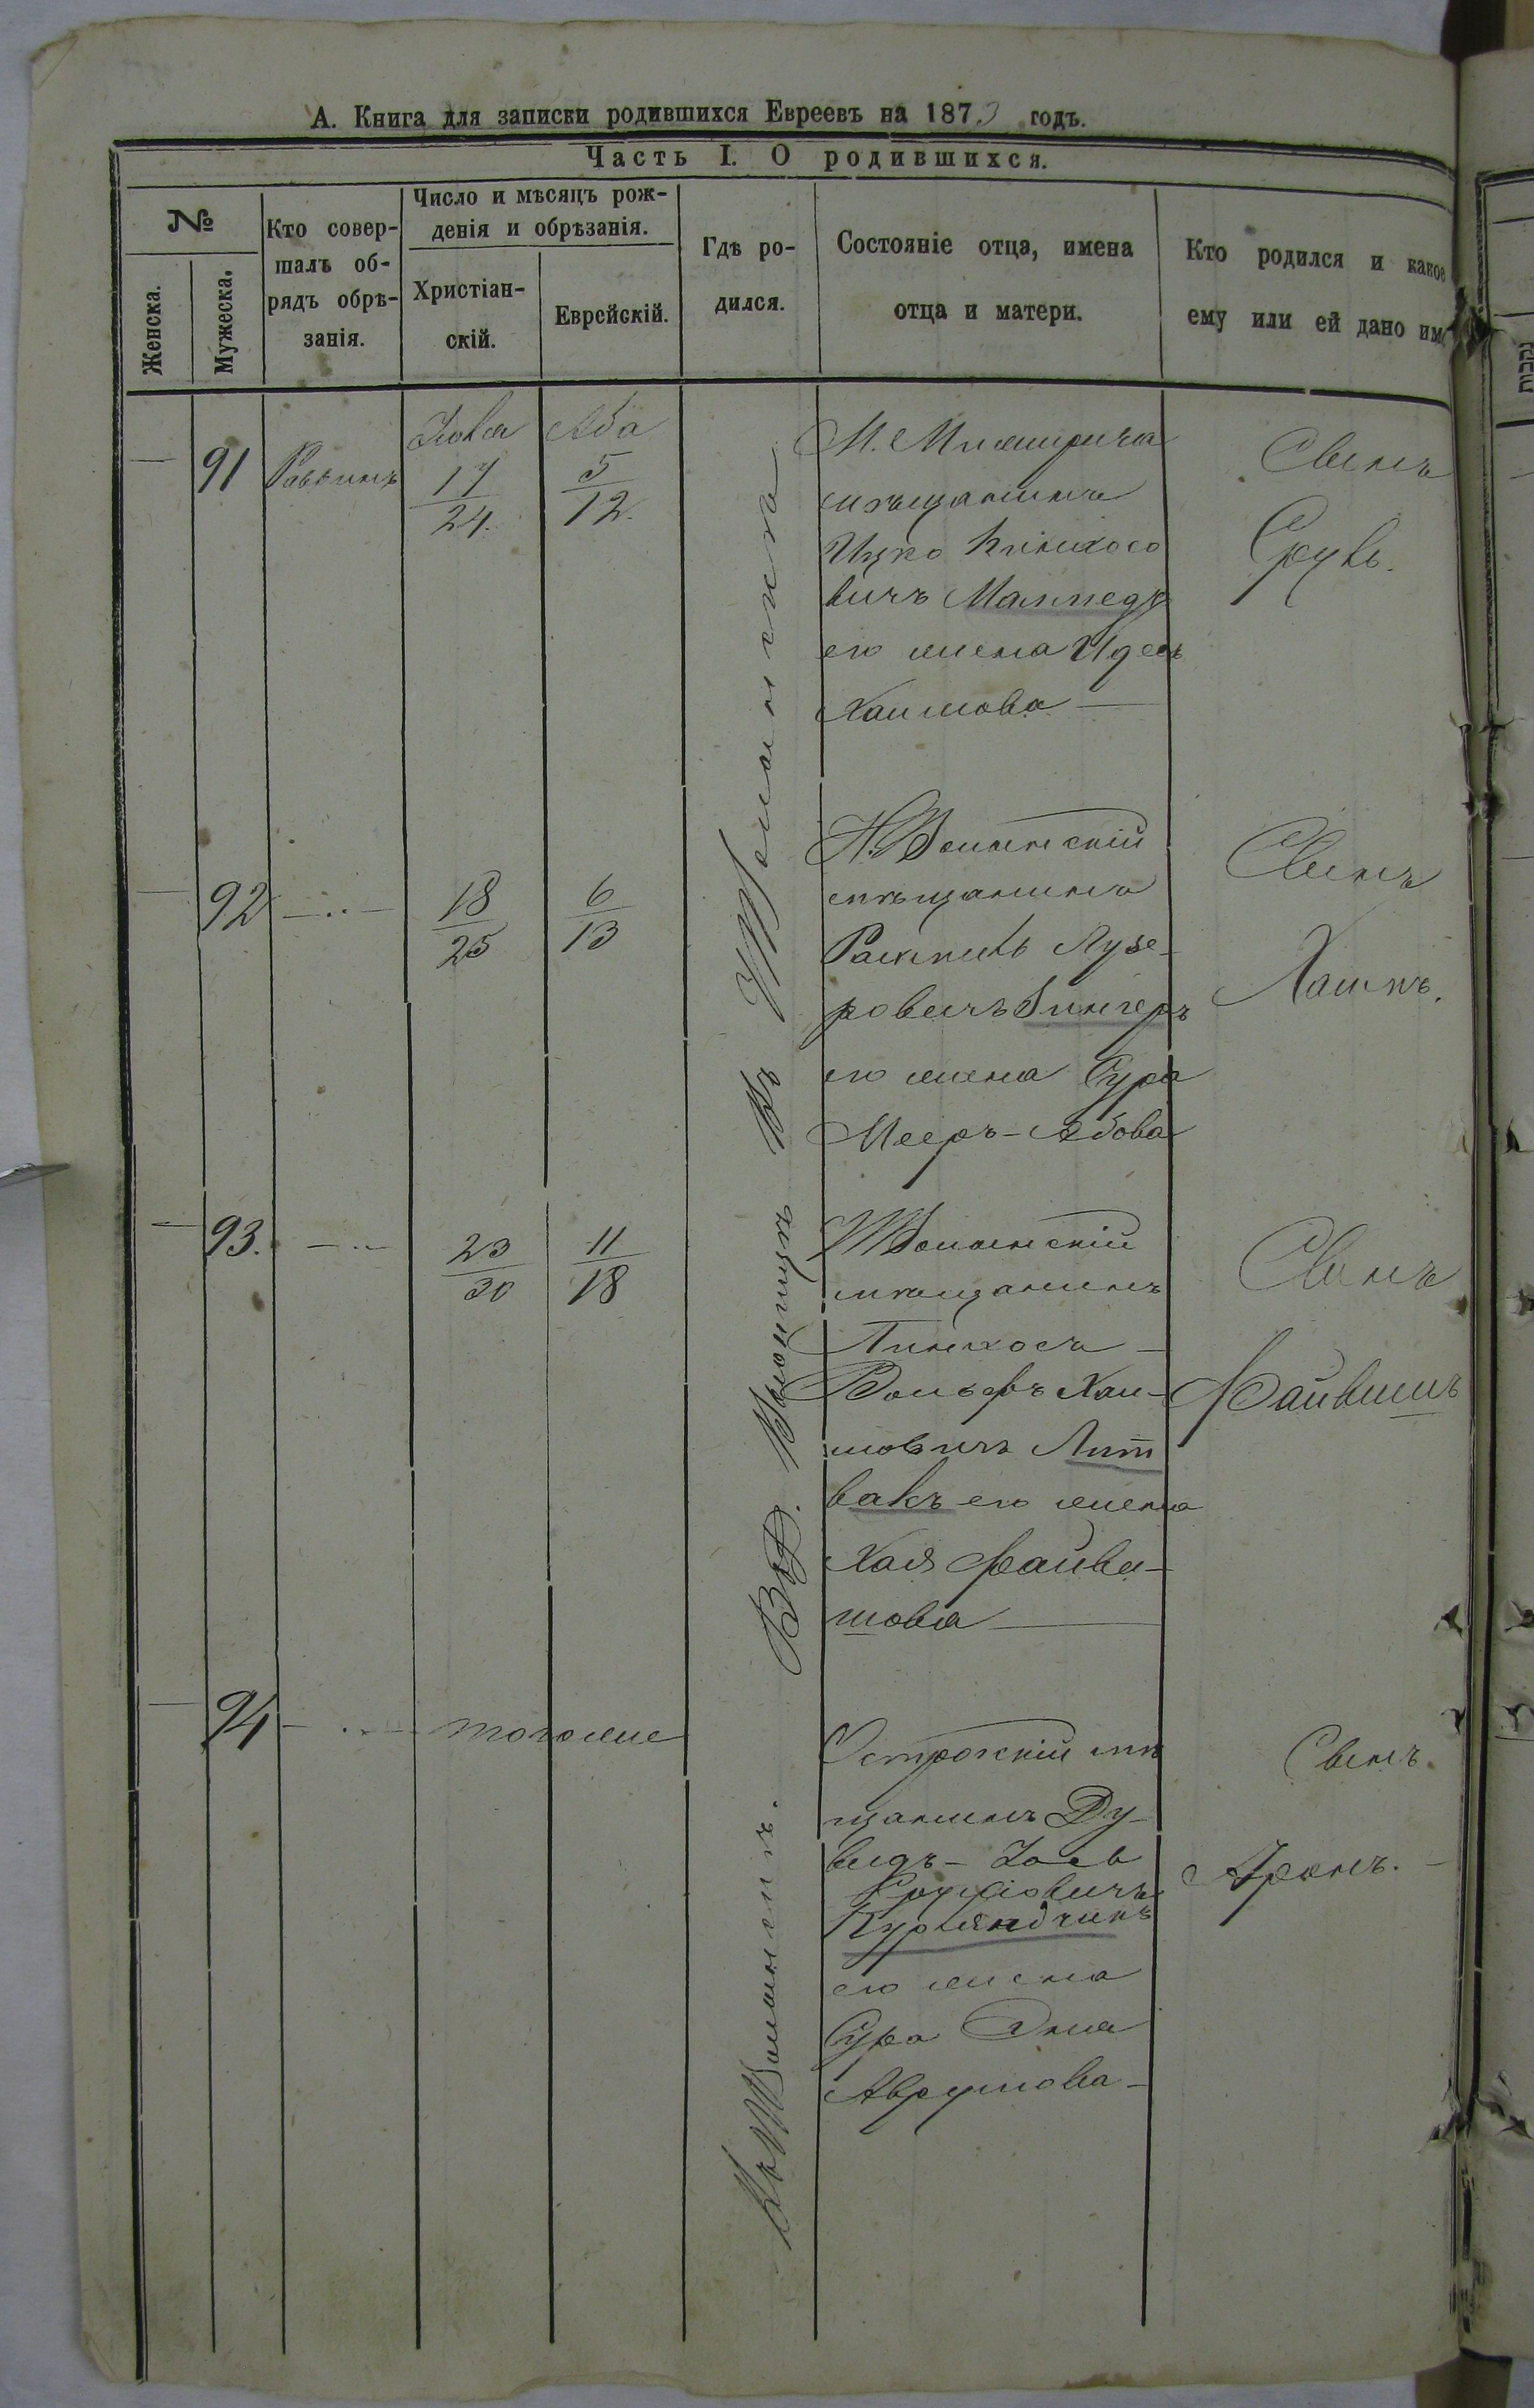 А. Книга для записки родившихся Евреевъ на 1873 годъ.
Часть I. О родившихся.
№
Женска.
Мужеска.
Кто совершалъ обрядъ обрѣзанія.
Число и мѣсяцъ рожденія и обрѣзанія.
Христіанскій.
Еврейскій.
Гдѣ родился.
Состояніе отца, имена
отца и матери.
Кто родился и какое
ему или ей дано им
91
Раввинъ
Іюля
17
24.
Аба
5
12.
М.
мѣщанинъ
Ицко Пинхосо
вичъ
его жена Идесъ
Хаимова
Сынъ
Сруль.
92
18
25
6
13
Н. Волынскій
мѣщанинъ
Лузе-
ровичъ Зингеръ
его жена Сура
Мееръ-Абова
Сынъ
Хаимъ.
93.
23
30
11
18
Н Волынскій
мѣщанинъ
Пинхосъ-
Вольфъ Хаи-
мовичъ Лит
вакъ его жена
Хая Файви-
шова
Сынъ
Файвишъ
94
тогоже
Острожскій мѣ
щанинъ Ду-
видъ-Іось
Сруліовичъ
его жена
Сура
Аврумова-
Сынъ.
Аронъ.
Въ